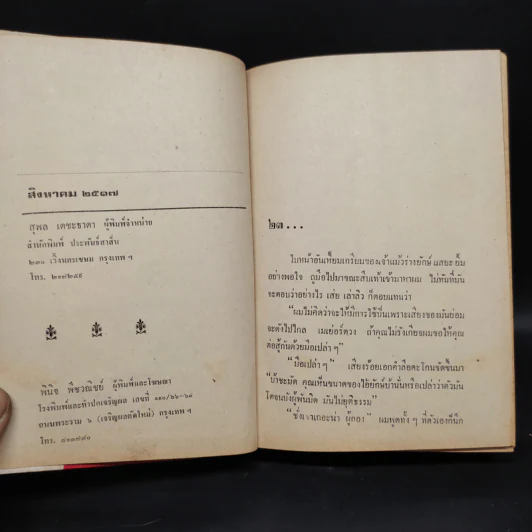 สิงหาคม ๒๕๑๗
สุพล เตชะธาดา ผู้พิมพ์จำหน่าย
สำนักพิมพ์ ประพันธ์สาส์น
๒๓๐ เวิ้งนครเขษม กรุงเทพ ฯ
โทร. ๒๑๗๒๕๙
พินิจ พืชวณิชย์ ผู้พิมพ์และโฆษณา
โรงพิมพ์และทำปกเจริญผล เลขที่
ถนนพระราม ๖ (เจริญผลตัดใหม่) กรุงเทพ ฯ
โทร.
๒๓...
ใบหน้าอันเหี้ยมเกรียมของเจ้าแม้วร่างยักษ์แสยะยิ้ม
อย่างพอใจ ถูมือไปมาขณะสืบเท้าเข้ามาหาผม ไม่ทันที่มัน
จะตอบว่าอย่างไร เสย เล่าสิว ก็ตอบแทนว่า
"ผมไม่คิดว่าจะให้มีการใช้ปืนเพราะเสียงของมันย่อม
จะดังไปไกล เมเยอร์ดวง ถ้าคุณไม่รังเกียจผมขอให้คุณ
ต่อสู้กันด้วยมือเปล่า ๆ"
"มือเปล่า ๆ" เสียงร้อยเอกคำลือตะโกนขัดขึ้นมา
"บ้าชะมัด คุณเห็นขนาดของไอ้ยักษ์บ้านั่นหรือเปล่าว่าตัวมัน
โตจนบังผู้พันมิด มันไม่ยุติธรรม"
"ช่างเจ้าเถอะน่า ผู้กอง" ผมพูดทั้ง ๆ ที่ตัวเองก็นึก